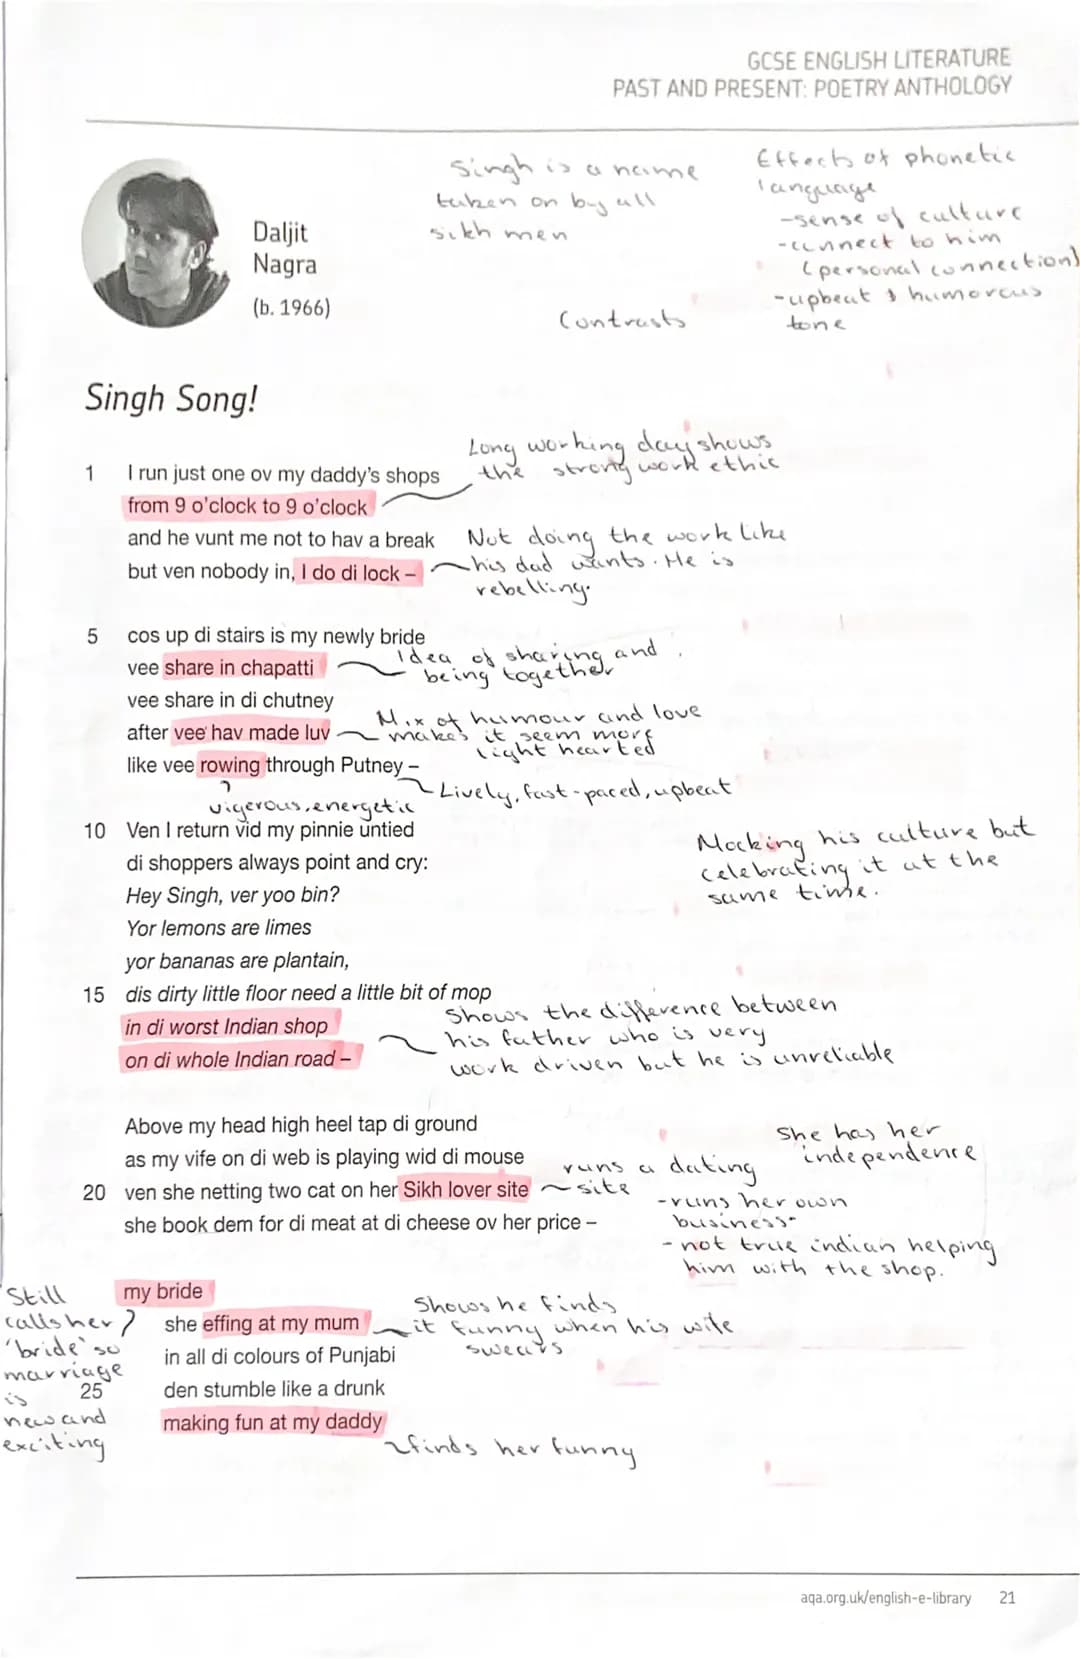 GCSE ENGLISH LITERATURE
PAST AND PRESENT: POETRY ANTHOLOGY
Daljit
Nagra
(b. 1966)
Singh is a name
taken on by all
sikh men
Effects of phonetic
language
-sense of culture
-connect to him
(personal connection)
-upbeat & humorous
tone
Contrasts
Singh Song!
Long working day shows
the strong work ethic
1 I run just one ov my daddy's shops
from 9 o'clock to 9 o'clock
and he vunt me not to hav a break
but ven nobody in, I do di lock –
Not doing the work like
his dad wants. He is
rebelling.
5 cos up di stairs is my newly bride
vee share in chapatti
Idea of sharing and
being together
vee share in di chutney
after vee hav made luv
Mix of humour and love
makes it seem more
light hearted
like vee rowing through Putney –
Lively, fast-paced, upbeat
vigerous, energetic
10 Ven I return vid my pinnie untied
di shoppers always point and cry:
Hey Singh, ver yoo bin?
Yor lemons are limes
yor bananas are plantain,
Mocking his culture but
celebrating it at the
same time.
15 dis dirty little floor need a little bit of mop
in di worst Indian shop
on di whole Indian road –
Shows the difference between
his father who is very
work driven but he is unreliable
Above my head high heel tap di ground
as my vife on di web is playing wid di mouse
20 ven she netting two cat on her Sikh lover site
she book dem for di meat at di cheese ov her price –
runs a dating
site
She has her
independence
-runs her own
business-
-not true indian helping
him with the shop.
my bride
she effing at my mum
in all di colours of Punjabi
25 den stumble like a drunk
making fun at my daddy
Still
calls her
'bride' so
marriage
is
new and
exciting
Shows he finds
it funny when his wife
swears
finds her funny
aqa.org.uk/english-e-library 21